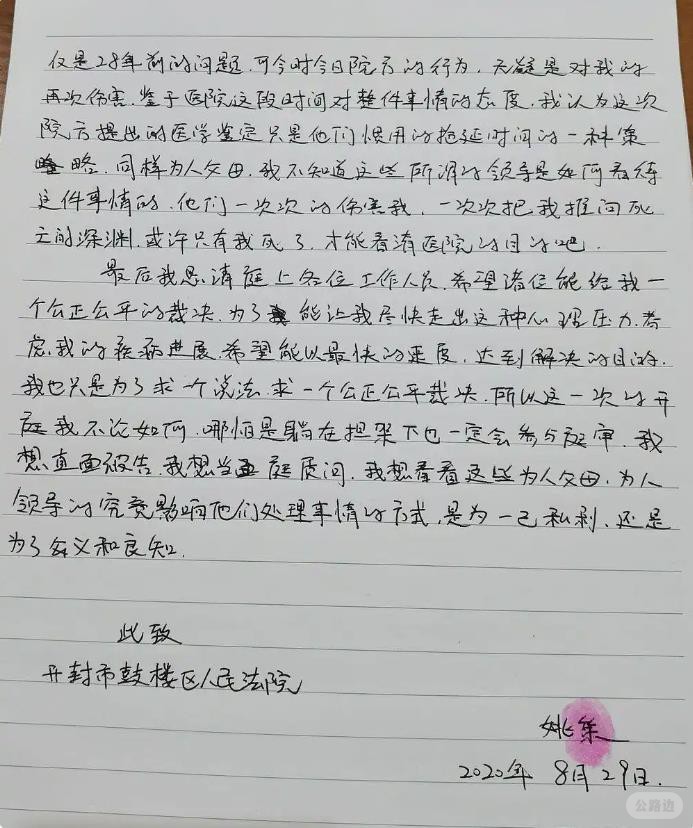 仅是28年前的问题，可今时今日院方的行为，无疑是对我的
再次伤害，鉴于医院这段时间对整件事情的态度，我认为这次
院方提出的医学鉴定只是他们惯用的拖延时间的一种策
略，同样为人父母，我不知道这些所谓的领导是如何看待
这件事情的，他们一次次的伤害我，一次次把我推向死
亡的深渊，或许只有我死了，才能看清医院的目的吧。
最后我恳请庭上各位工作人员，希望诸位能给我一
个公正公平的裁决，为了能让我尽快走出这种心理压力，考
虑我的疾病进展，希望能以最快的速度，达到解决的目的，
我也只是为了求一个说法，求一个公正公平裁决，所以这一次的开
庭我不论如何，哪怕是躺在担架下也一定会参与庭审，我
想直面被告，我想当面庭质问，我想看看这些为人父母，为人
领导的究竟影响他们处理事情的方式，是为一己私利，还是
为了公义和良知。
此致
开封市鼓楼区人民法院
姚策
2020年 8月29日.
公路边